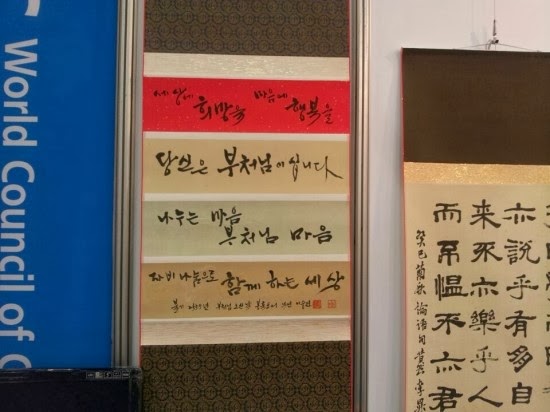 World Council of
세상에 희망을 마음에 행복을
당신은 부처님이십니다
나누는 마음
부처님 마음
자비나눔으로 함께 하는 세상
亦說乎有朋自
來不亦樂乎人
而不慍不亦君
癸巳蘭秋論語句